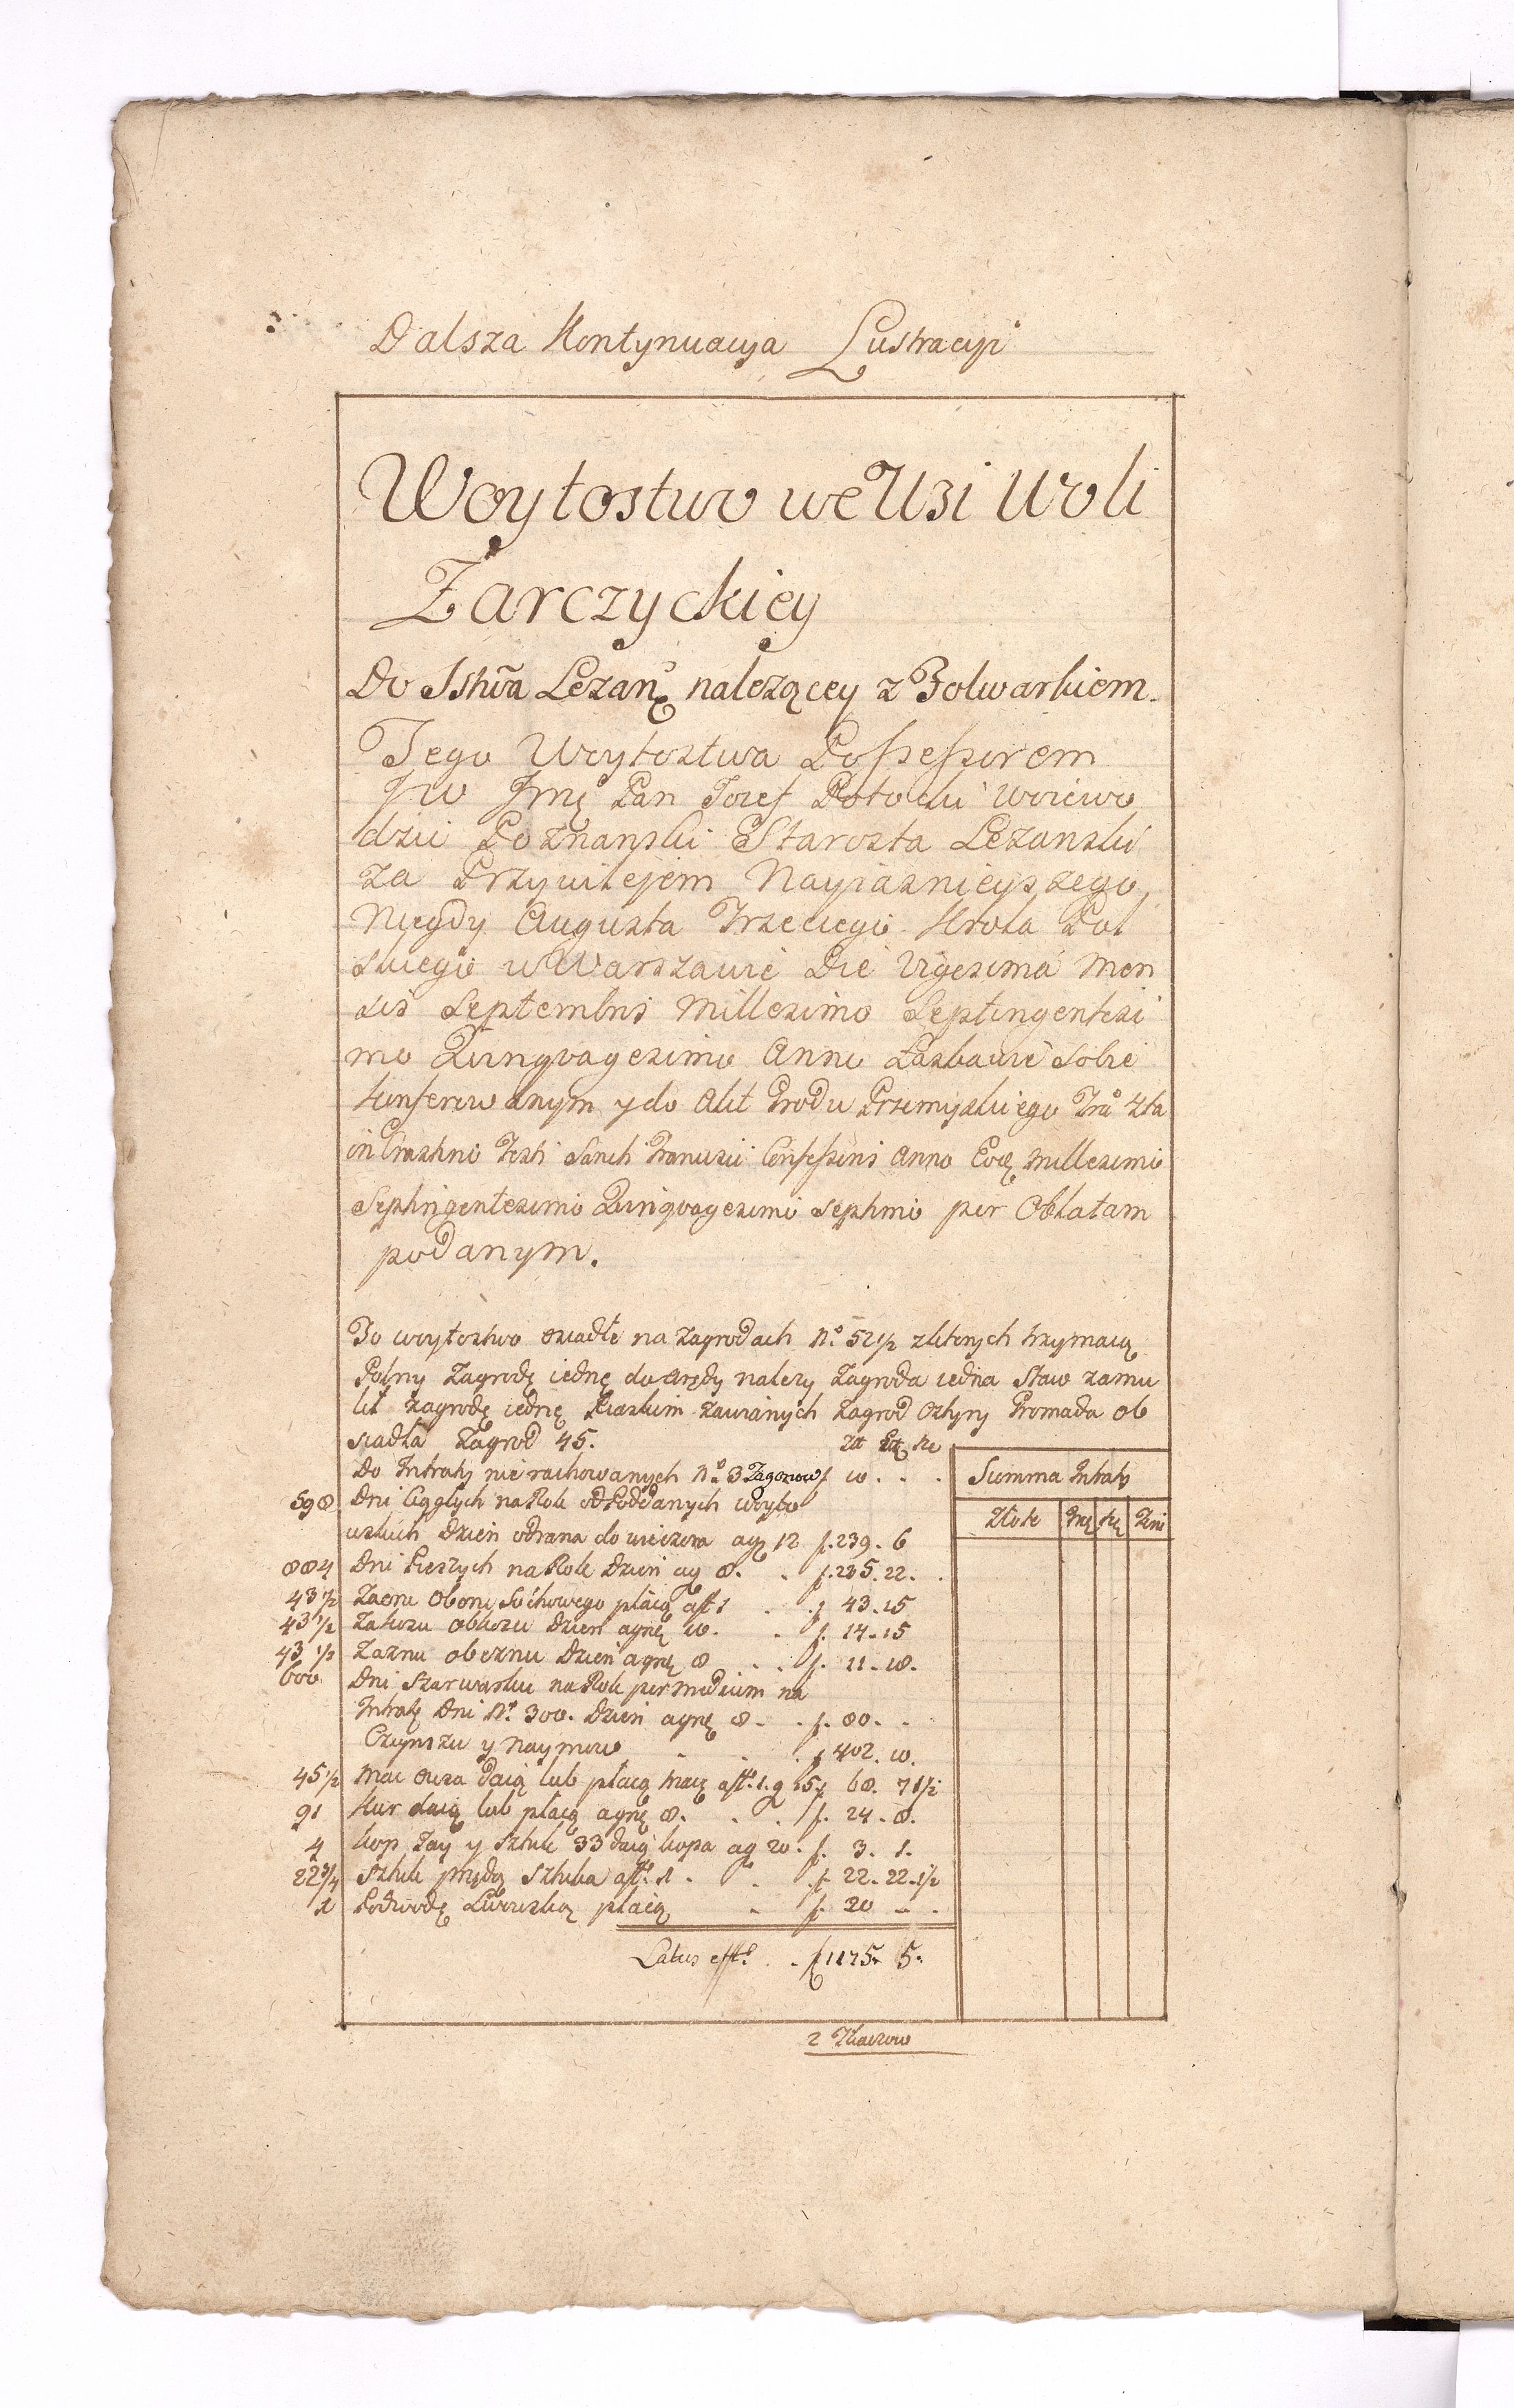 Dalsza Kontynuacya Lustracyi
Woytostwo we Wsi Woli
Żarczyckiey
Do Sstwa Leżan: należącey z Folwarkiem.
Tego Woytostwa Possessorem
JW Jmć Pan Jozef Potocki Woiewo
dzic Poznański Starosta Leżanski
za Przywilejem Nayiasnieyszego
Niegdy Augusta Trzeciego Krola Pol
skiego w Warszawie Die Vigesima Men
sis Septembris Millesimo Septingentesi
mo Quinqvagesimo Anno Łaskawie Sobie
konferowanym y do Akt Grodu Przemyskiego
in Crastino Festi Sancti Francisci Confessoris Anno Millesimo
Septingentesimo Quinqvagesimo Septimo per Oblatam
podanym.
To woytostwo osiadłe na zagrodach No. 52 1/2 z ktorych trzymaią
Polny Zagrodę iednę do Arędy należy Zagroda iedna Staw zamu
lił zagrodę iednę Piaskim zawianych Zagrod cztyry Gromada ob
siadła Zagrod 45. Zł
Do Intraty nie rachowanych No. 3 Zagonow f. 10
598 Dni Ciągłych na Rok od Poddanych Woyto
wskich dzien od rana do wieczora a g. 12 f. 239. 6
884 Dni Pieszych na Rok dzien a g 8. f. 235. 22.
43 1/2 Za płacą a ft 1 f. 43. 15
43 1/2 Za dzien a gr. 10. f. 14. 15
43 1/2 Za dzien a gr. 8 f. 11. 18.
600 Dni Szarwarku na Rok per medium na
Intratę Dni No. 300. dzien a gr. 8. f. 80.
Czynszu y Naymow f. 402. 10.
45 1/2 Mac owsa daią lub płacą macę a ft. 1. g 15 f. 68. 7 1/2
91 Kur daią lub płacą a gr. 8. f. 24. 8.
4 kop Jay y sztuk 33 daią kopa a g 20. f. 3. 1.
22 3/4 Sztuk przędą sztuka a ft. 1. f. 22. 22 1/2
1 Podwodę Lwowską płacą f. 20
Latus efft. f. 1175. 5.
Summa Intraty
Złote
z Tkaczow